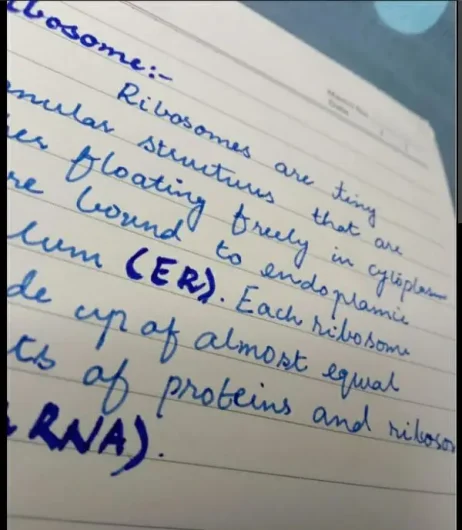 ibosome:-
Ribosomes are tiny
anular structures that are
her floating freely in cytoplasm
re bound to endoplamic
lum (ER). Each ribosome
de up of almost equal
ts of proteins and riboso
RNA).